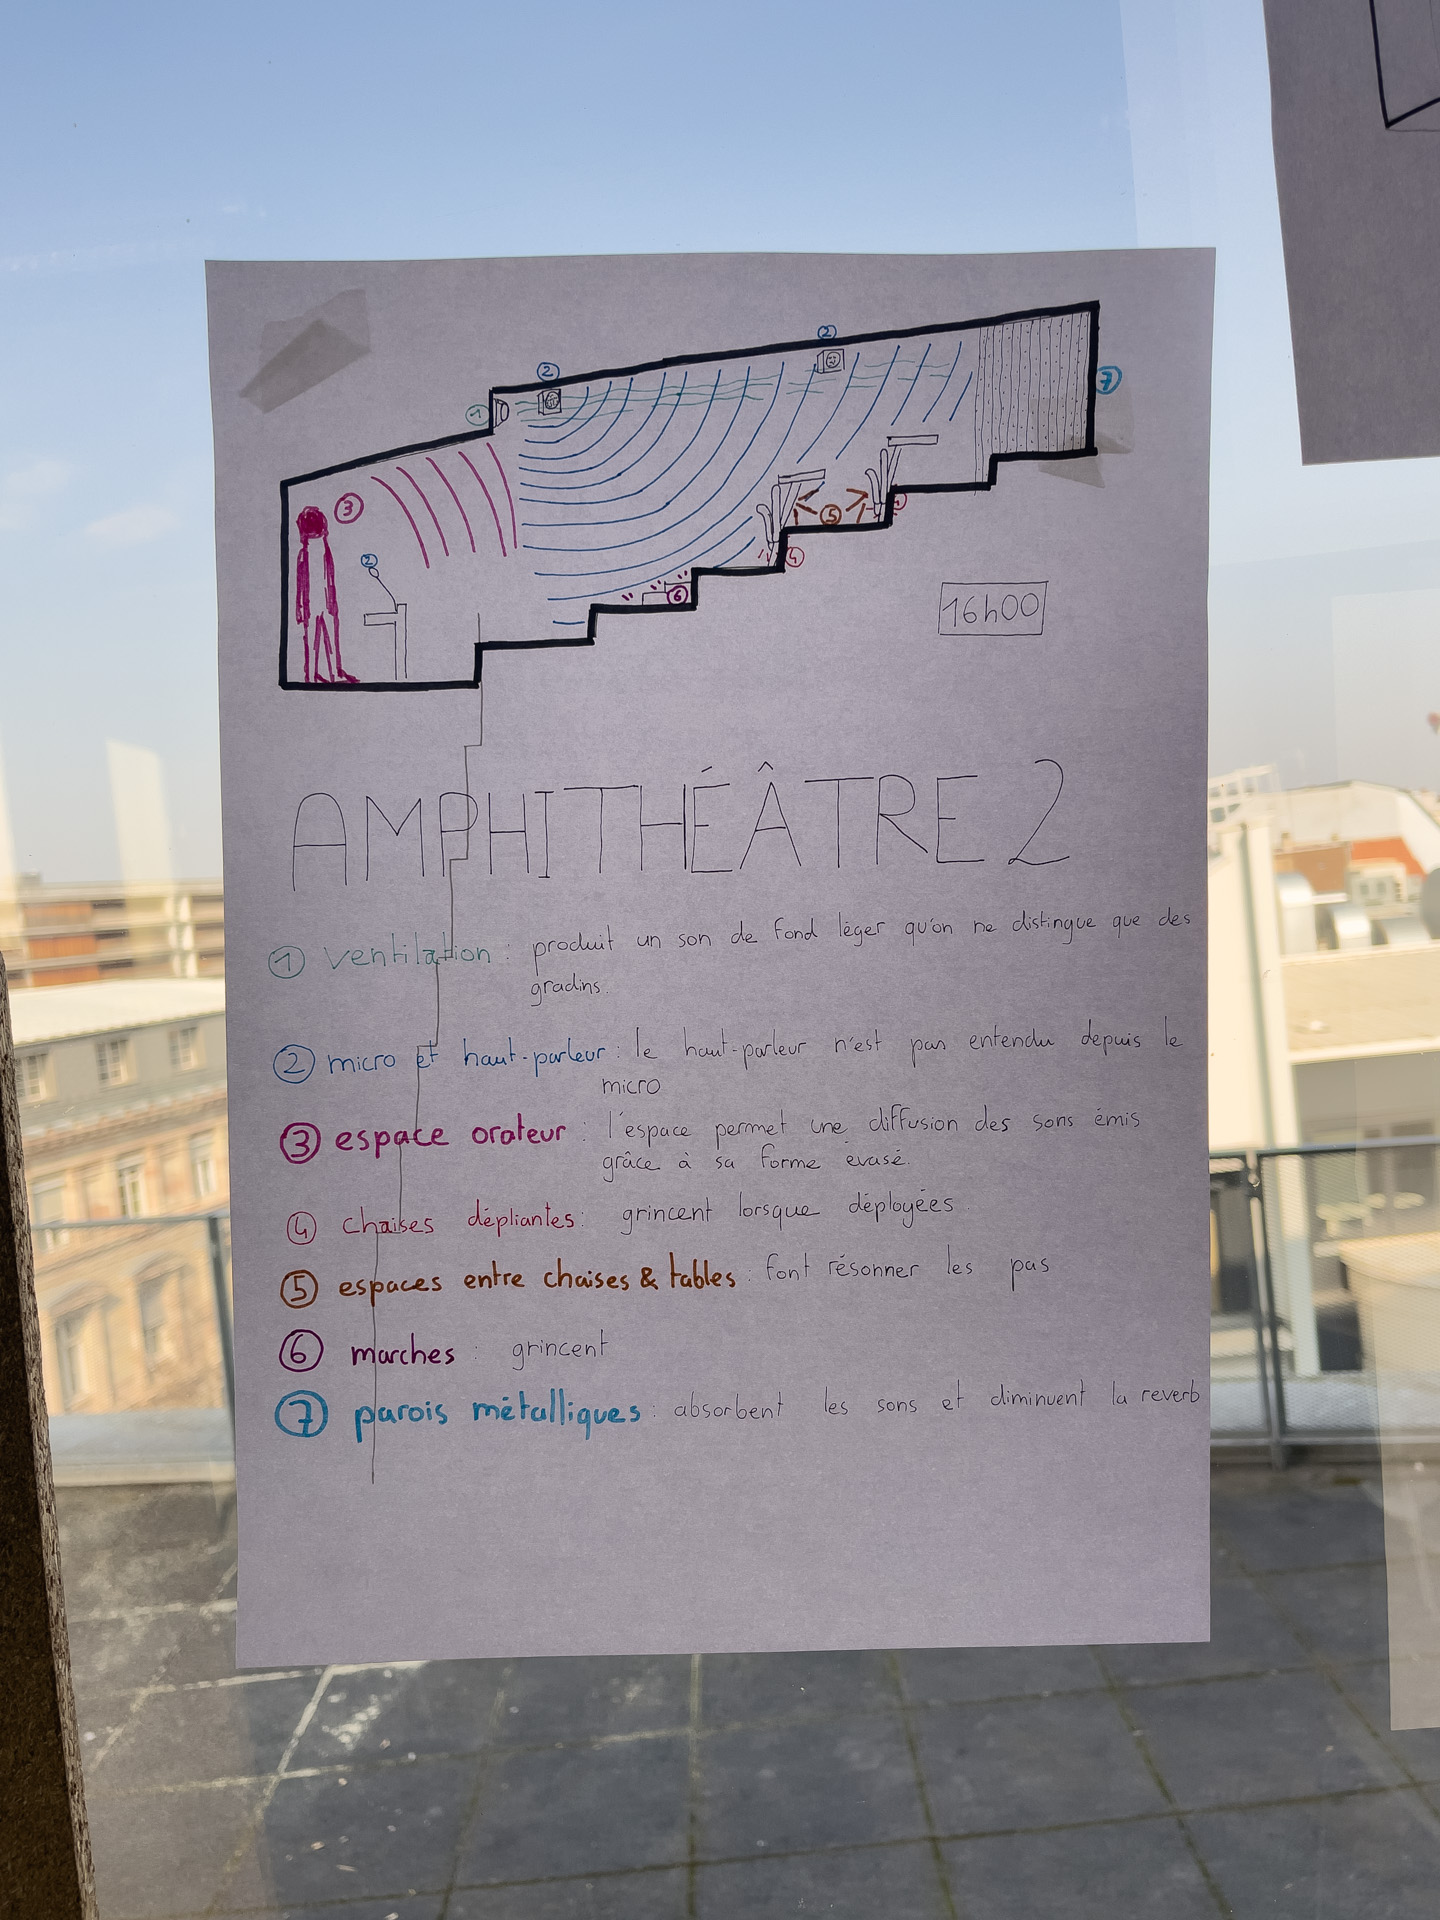 2
2
7
1
3
2
5
4
4
6
16h00
AMPHITHÉÂTRE 2
1 ventilation : produit un son de fond léger qu'on ne distingue que des
gradins.
2 micro et haut-parleur : le haut-parleur n'est pas entendu depuis le
micro
3 espace orateur : l'espace permet une diffusion des sons émis
grâce à sa forme évasé.
4 chaises dépliantes : grincent lorsque déployées.
5 espaces entre chaises & tables : font résonner les pas
6 marches : grincent
7 parois métalliques : absorbent les sons et diminuent la reverb